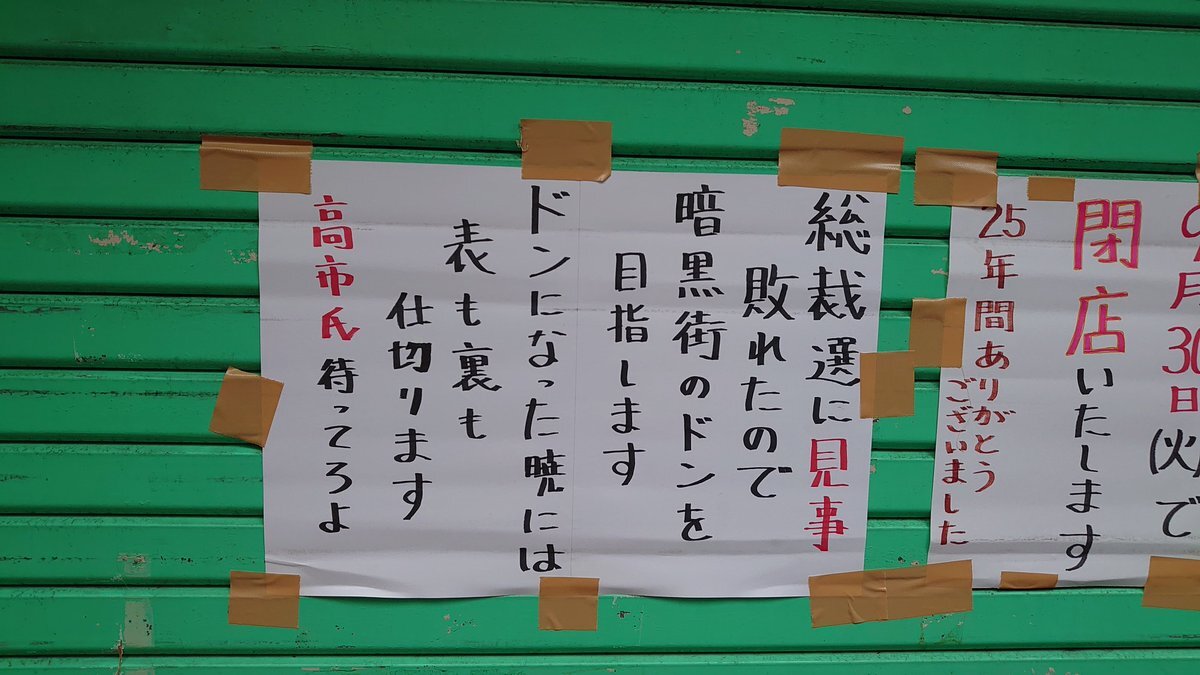 9月30日(火)で
閉店いたします
25年間ありがとう
ございました
総裁選に見事
敗れたので
暗黒街のドンを
目指します
ドンになった暁には
表も裏も
仕切ります
高市氏待ってろよ